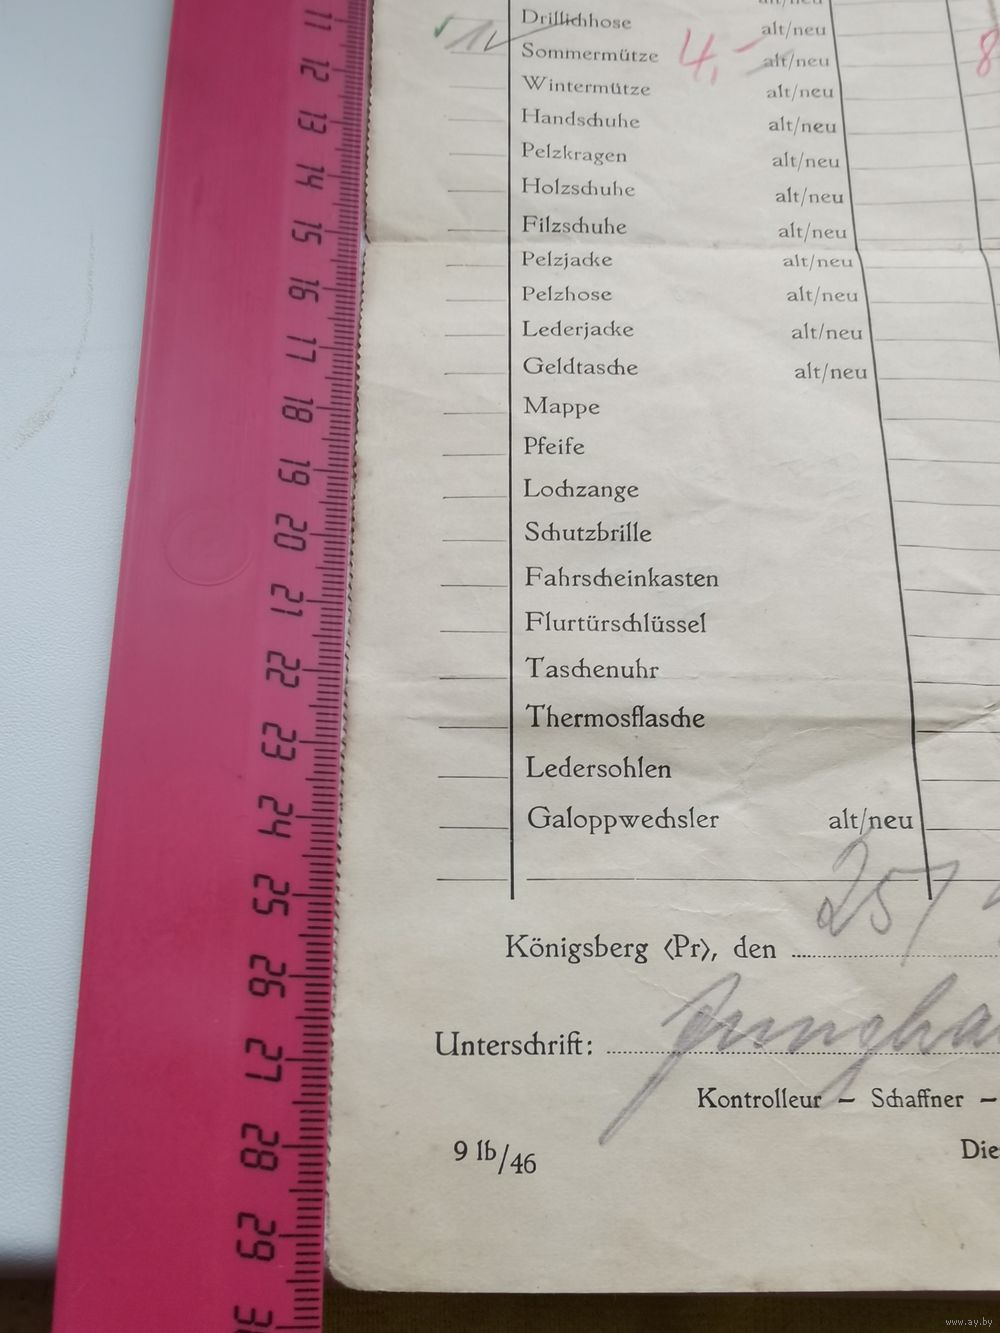 Drillichhose alt/neu
Sommermütze 4,- alt/neu 8
Wintermütze alt/neu
Handschuhe alt/neu
Pelzkragen alt/neu
Holzschuhe alt/neu
Filzschuhe alt/neu
Pelzjacke alt/neu
Pelzhose alt/neu
Lederjacke alt/neu
Geldtasche alt/neu
Mappe
Pfeife
Lochzange
Schutzbrille
Fahrscheinkasten
Flurtürschlüssel
Taschenuhr
Thermosflasche
Ledersohlen
Galoppwechsler alt/neu
Königsberg (Pr), den 25/
Unterschrift: Jungha
Kontrolleur – Schaffner –
9 lb/46 Die
11
12
13
14
15
16
17
18
19
20
21
22
23
24
25
26
27
28
29
30
www.ay.by